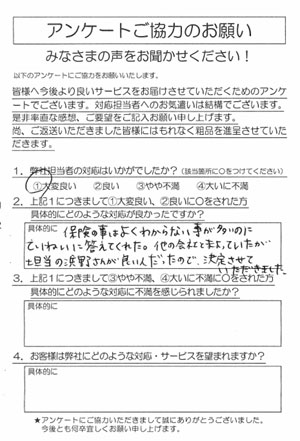 アンケートご協力のお願い
みなさまの声をお聞かせください！
以下のアンケートにご協力をお願いいたします。
皆様へ今後より良いサービスをお届けさせていただくためのアンケ
ートでございます。対応担当者へのお気遣いは結構でございます。
是非率直な感想、ご要望をご記入お願い申し上げます。
尚、ご返送いただきました皆様にはもれなく粗品を進呈させていた
だきます。
1．弊社担当者の対応はいかがでしたか？（該当箇所に○をつけてください）
①大変良い ②良い ③やや不満 ④大いに不満
2．上記1につきまして①大変良い、②良いに○をされた方
具体的にどのような対応が良かったですか？
具体的に
保険の事はよくわからない事が多いのに
ていねいに答えてくれた。他の会社とも
担当の浜野さんが良い人だったので、決定させて
いただきました
3．上記1につきまして③やや不満、④大いに不満に○をされた方
具体的にどのような対応に不満を感じられましたか？
具体的に
4．お客様は弊社にどのような対応・サービスを望まれますか？
具体的に
★アンケートにご協力いただきまして誠にありがとうございました。
今後とも何卒宜しくお願い申し上げます。